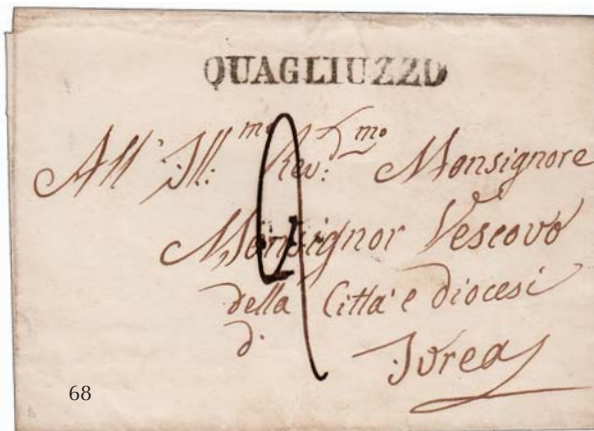 QUAGLIUZZO
All' Ill:mo Rev:mo Monsignore
Monsignor Vescovo
della Città e diocesi
d.
Ivrea
68